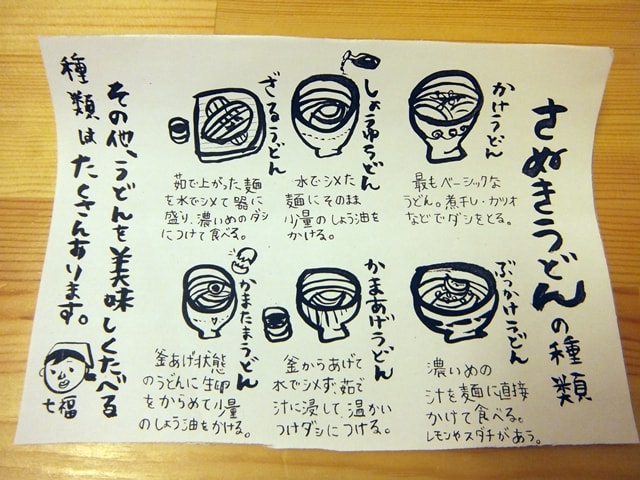 さぬきうどんの種類
かけうどん
最もベーシックな
うどん。煮干し・カツオ
などでダシをとる。
しょうゆうどん
水でシメた
麺にそのまま
少量のしょう油を
かける。
ざるうどん
茹で上がった麺
を水でシメて器に
盛り、濃いめのダシ
につけて食べる。
ぶっかけうどん
濃いめの
汁を麺に直接
かけて食べる。
レモンやスダチがあう。
かまあげうどん
釜からあげて
水でシメず、茹で
汁に浸して、温かい
つけダシにつける。
かまたまうどん
釜あげ状態
のうどんに生卵
をからめて少量
のしょう油をかける。
その他、うどんを美味しくたべる
種類はたくさんあります。
七福